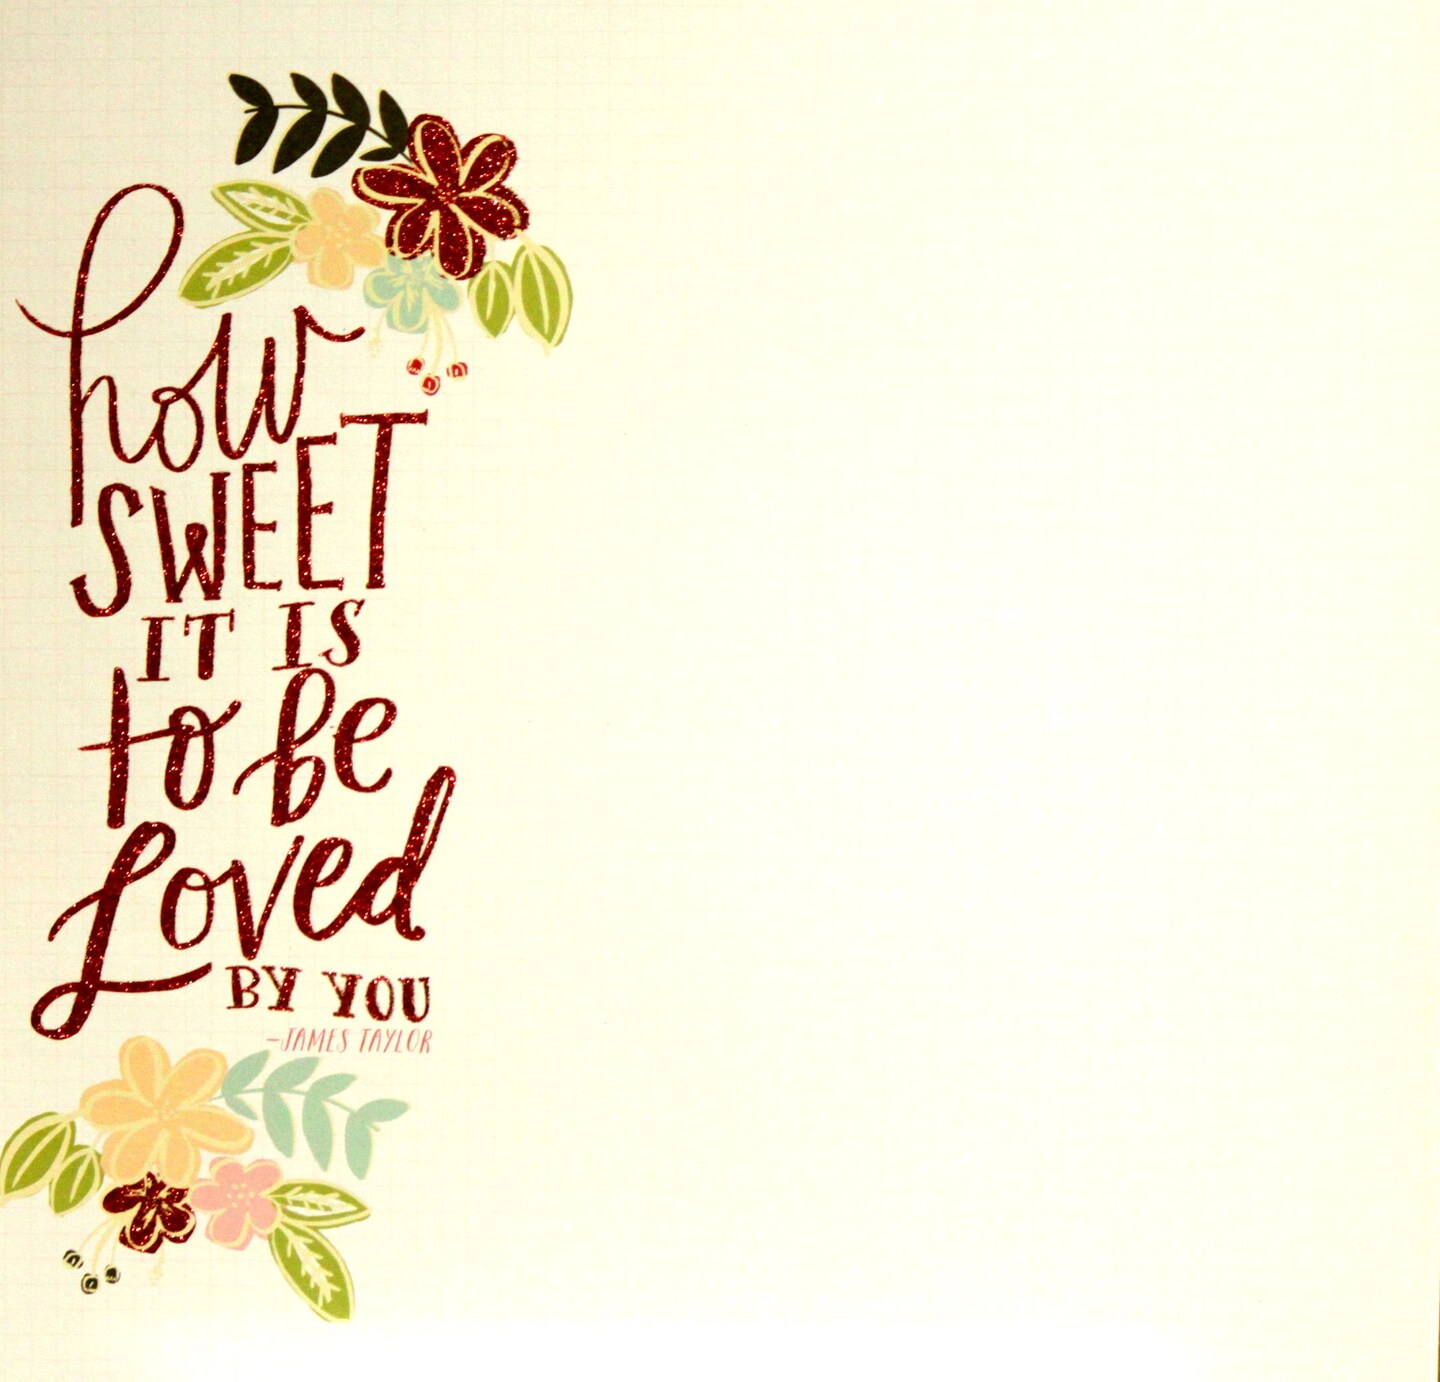 how
SWEET
IT IS
to be
Loved
BY YOU
–JAMES TAYLOR